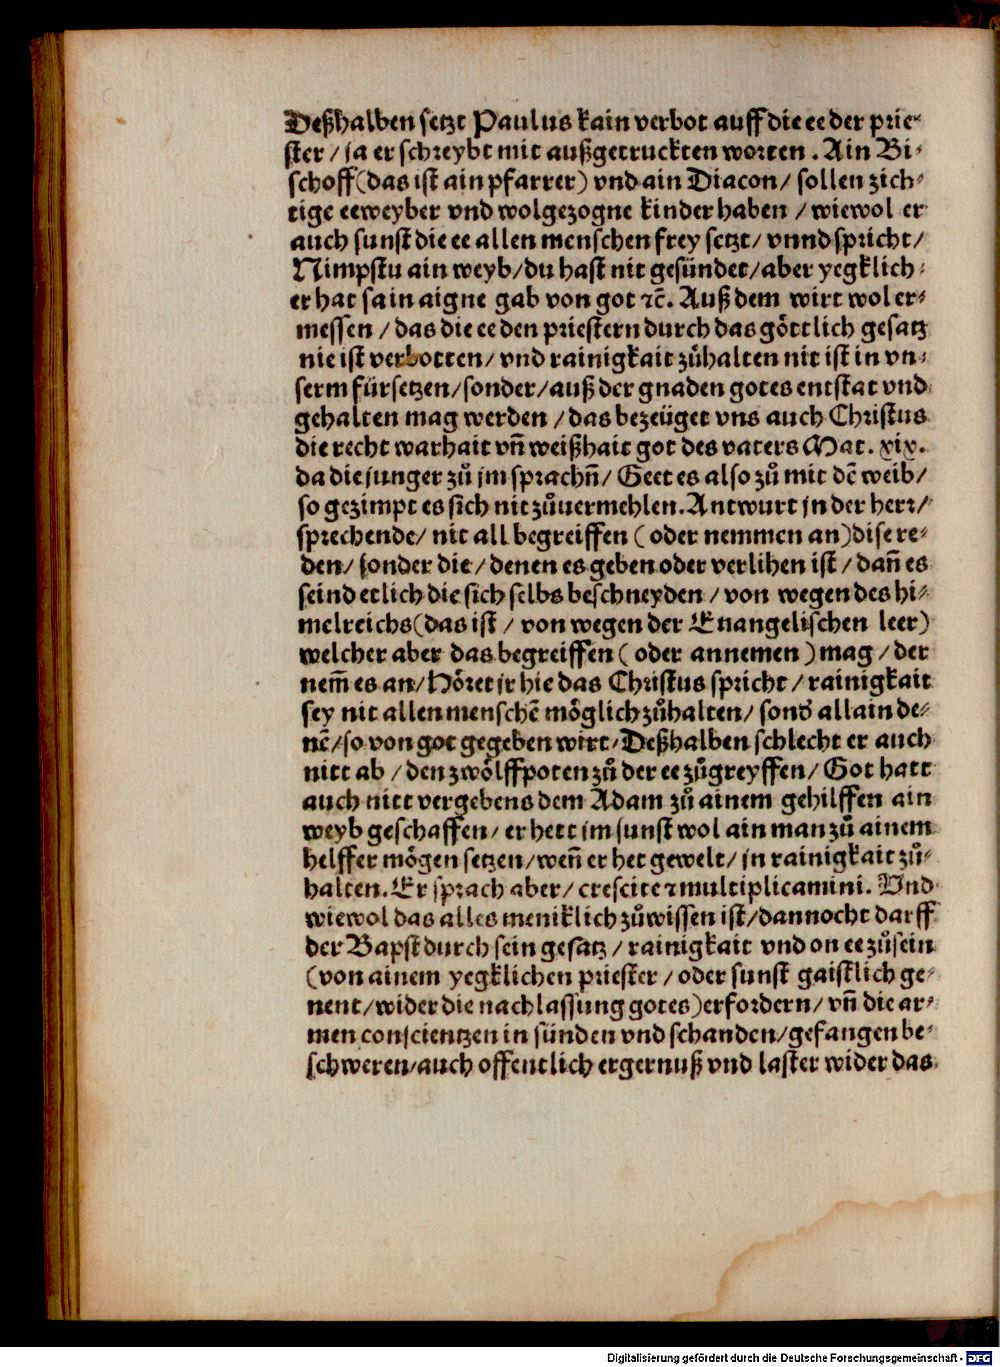 Deßhalben setzt Paulus kain verbot auff die ee der prie⸗
ster / ja er schreybt mit außgetruckten worten . Ain Bi⸗
schoff (das ist ain pfarrer) vnd ain Diacon / sollen zich⸗
tige eeweyber vnd wolgezogne kinder haben / wiewol er
auch sunst die ee allen menschen frey setzt / vnnd spricht /
Nimpstu ain weyb / du hast nit gesündet / aber yegklich⸗
er hat sain aigne gab von got ⁊c̄. Auß dem wirt wol er⸗
messen / das die ee den priestern durch das göttlich gesatz
nie ist verbotten / vnd rainigkait zůhalten nit ist in vn⸗
serm fürsetzen / sonder / auß der gnaden gotes entstat vnd
gehalten mag werden / das bezeüget vns auch Christus
die recht warhait vn̄ weißhait got des vaters Mat. xix.
da die junger zů jm sprachn̄ / Geet es also zů mit dē weib /
so gezimpt es sich nit zůuermehlen. Antwurt jn der herr /
sprechende / nit all begreiffen ( oder nemmen an) dise re⸗
den / sonder die / denen es geben oder verlihen ist / dan̄ es
seind etlich die sich selbs beschneyden / von wegen des hi⸗
melreichs (das ist / von wegen der Euangelischen leer)
welcher aber das begreiffen ( oder annemen ) mag / der
nem̄ es an / Höret jr hie das Christus spricht / rainigkait
sey nit allen menschē möglich zůhalten / sond' allain de⸗
nē / so von got gegeben wirt / Deßhalben schlecht er auch
nitt ab / den zwölffpoten zů der ee zůgreyffen / Got hatt
auch nitt vergebens dem Adam zů ainem gehilffen ain
weyb geschaffen / er hett jm sunst wol ain man zů ainem
helffer mögen setzen / wen̄ er het gewelt / jn rainigkait zů⸗
halten. Er sprach aber / crescite ⁊ multiplicamini. Vnd
wiewol das alles meniklich zůwissen ist / dannocht darff
der Bapst durch sein gesatz / rainigkait vnd on ee zůsein
(von ainem yegklichen priester / oder sunst gaistlich ge⸗
nent / wider die nachlassung gotes) erfordern / vn̄ die ar⸗
men conscientzen in sünden vnd schanden / gefangen be⸗
schweren / auch offentlich ergernuß vnd laster wider das
Digitalisierung gefördert durch die Deutsche Forschungsgemeinschaft - DFG